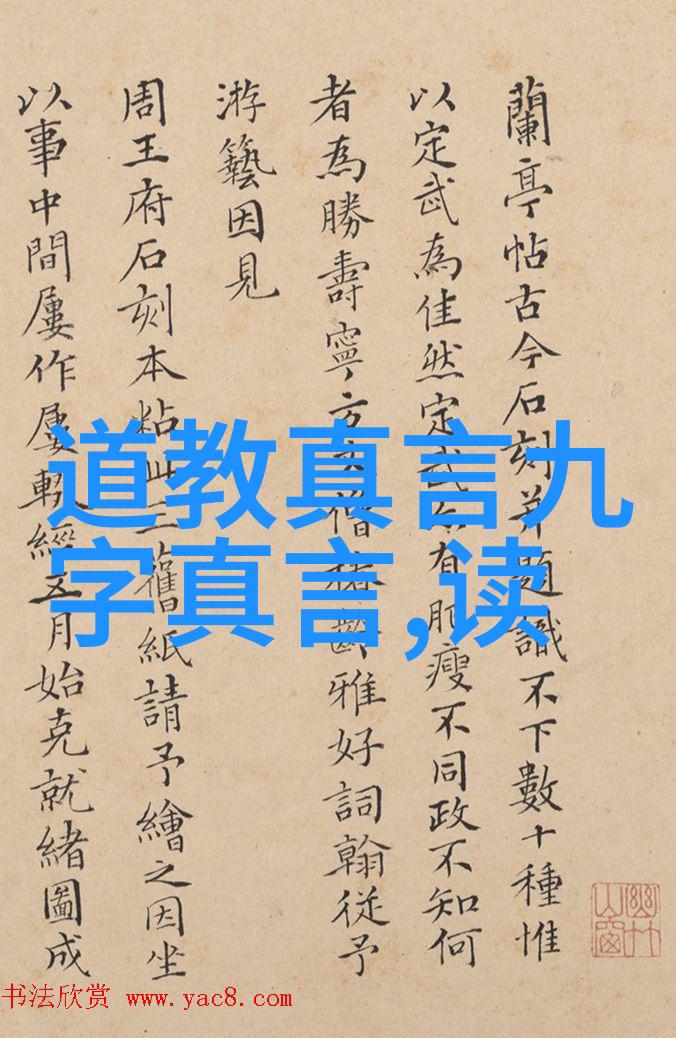 蘭亭帖古今石刻并題識不下數十種惟
以定武為佳然定武亦有肥瘦不同政不知何
者為勝壽寧方
雅好詞翰從予
游藝因見
周王府石刻本粘
舊紙請予繪之因坐
以事中間屢作屢輟經五月始克就緒圖成
道教真言九
字真言,读
书法欣赏 www.yac8.com